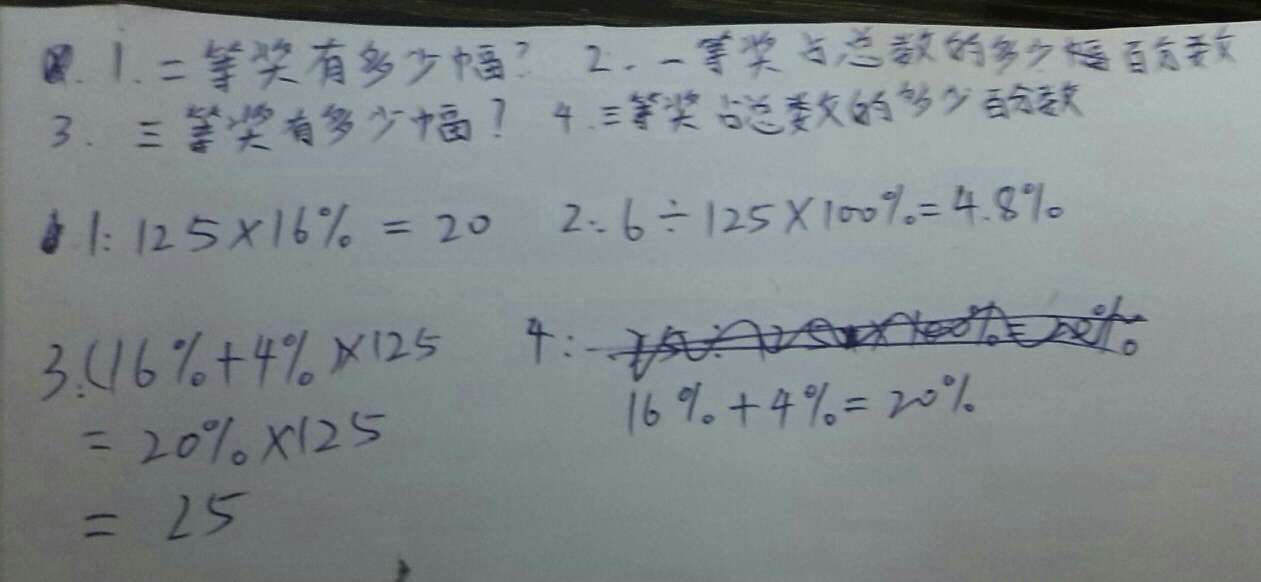 1. 二等奖有多少幅? 2. 一等奖占总数的多少幅百分数
3. 三等奖有多少幅? 4. 三等奖占总数的多少百分数
1: 125×16% = 20 2: 6÷125×100%=4.8%
3.(16%+4%)×125 4:
16%+4%=20%
= 20%×125
= 25